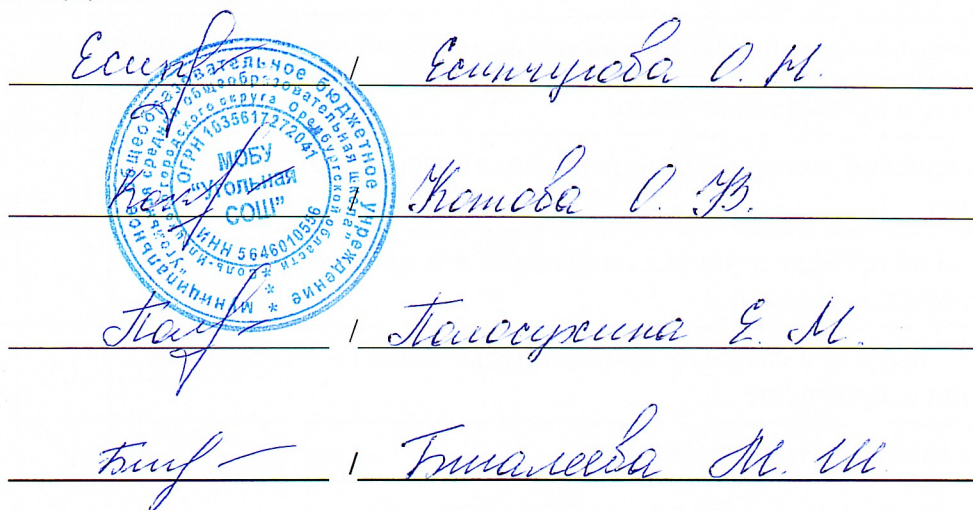 Есин / Есинчугова О. Н.
Кот / Котова О. В.
Пол / Полосухина Е. М.
Бил / Билалеева М. Ш.
* Муниципальное общеобразовательное бюджетное учреждение
"Угольная средняя общеобразовательная школа"
* Соль-Илецкого городского округа Оренбургской области
ОГРН 1035617272041
МОБУ
"Угольная
СОШ"
ИНН 5646010556